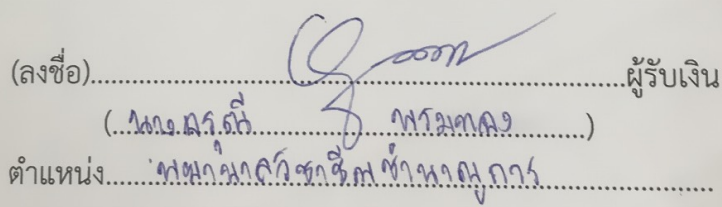 (ลงชื่อ)....................ผู้รับเงิน
(..นางดรุณี.......... พรมทอง..........)
ตำแหน่ง.....พยาบาลวิชาชีพชำนาญการ..........